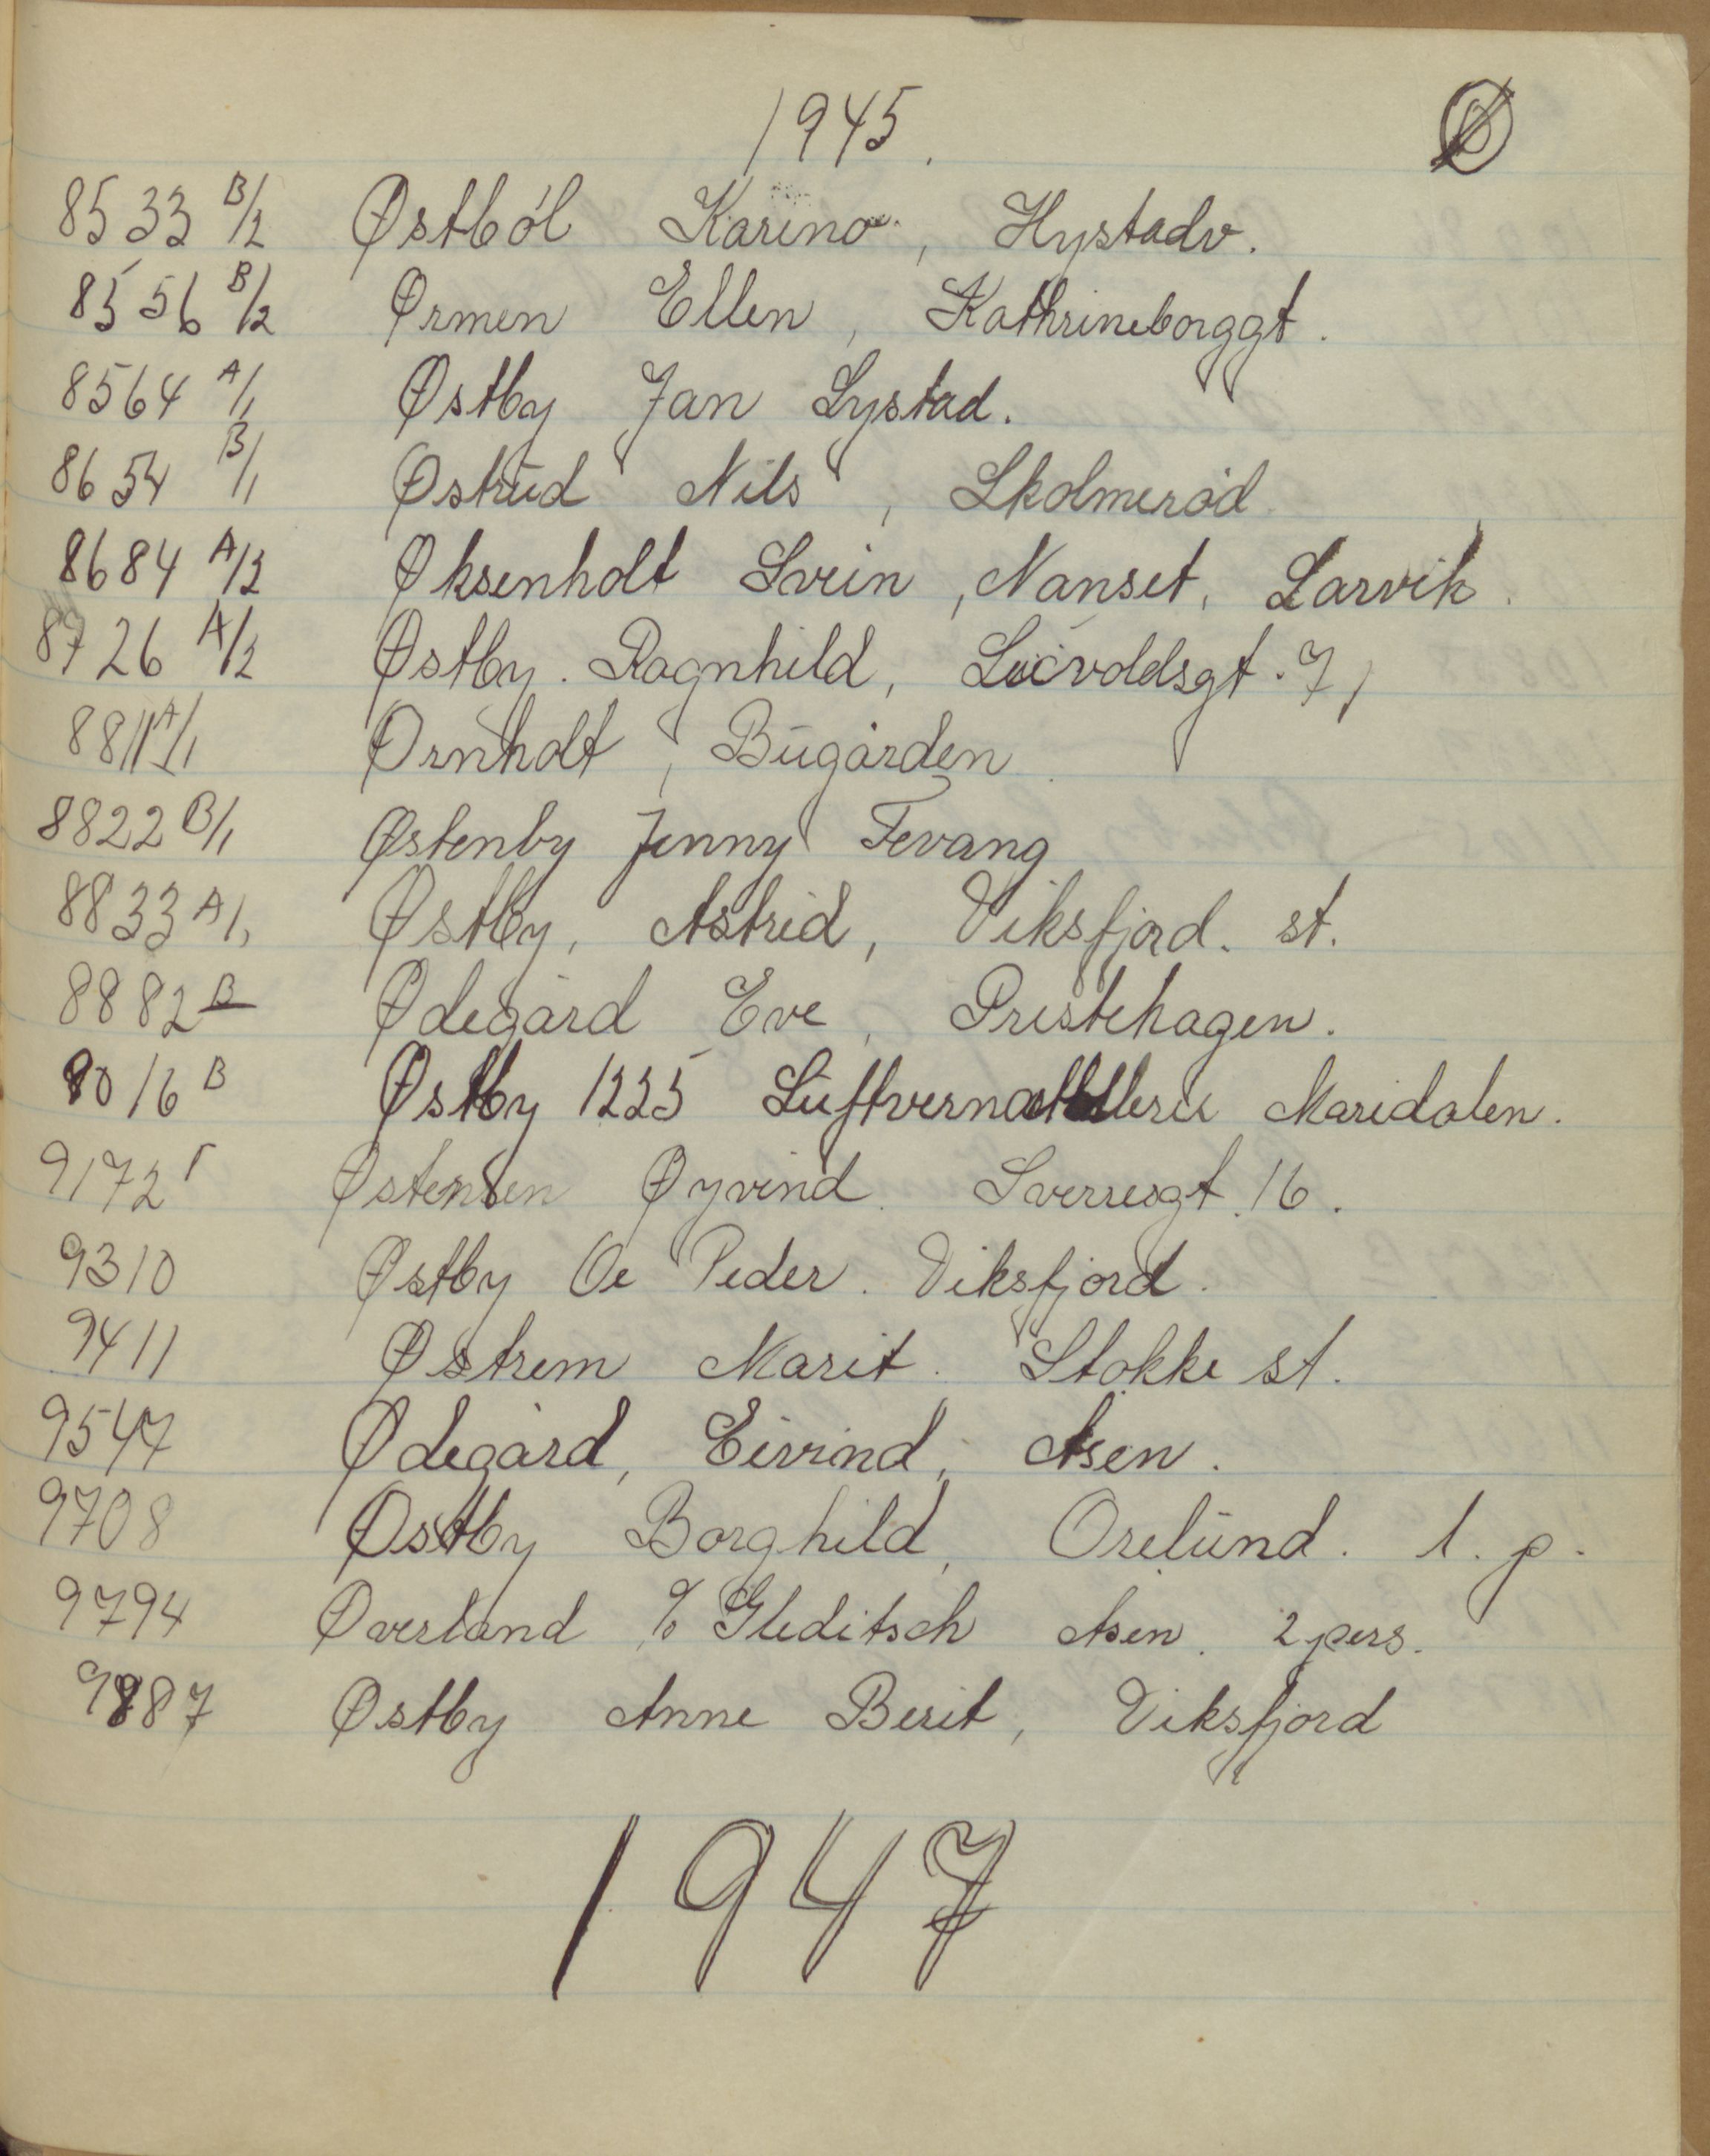 1945. Ø
8533 B/2 Østból Karina, Hystadv.
8556 B/2 Ørmen Ellen, Kathrineborggt.
8564 A/1 Østby Jan Lystad.
8654 B/1 Østrud Nils, Skolmeröd
8684 A/2 Øksenholt Svein, Nanset, Larvik.
8726 A/2 Østby. Ragnhild, 7,
8811 A/1 Ørnholt, Bugården
8822 B/1 Østenby Jenny Fevang
8833 A/1, Østby, Astrid, Viksfjord. st.
8882 B Ødegård Eve, Prestehagen.
9016 B Østby 1225 Maridalen.
9172 Østensen Øyvind. Sverresgt. 16.
9310 Østby Peder. Viksfjord.
9411 Østrem Marit. Stokke st.
9547 Ødegård, Eivind, Åsen.
9708 Østby Borghild, Orelund. 1. p.
9794 Øverland % Gleditsch Åsen. 2 pers.
9887 Østby Anne Berit, Viksfjord
1947